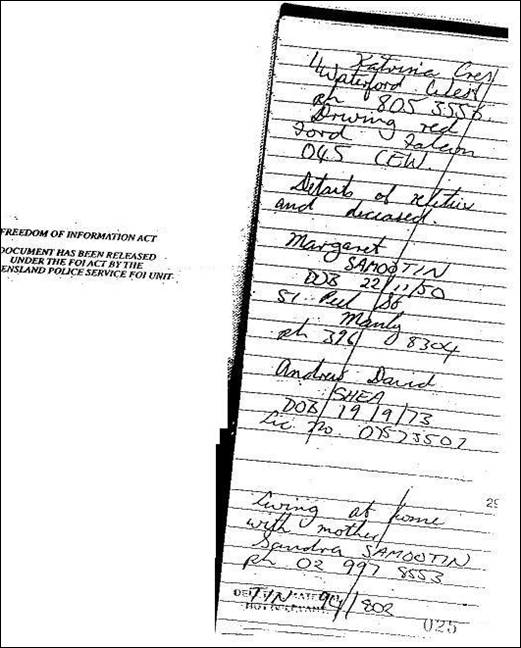 FREEDOM OF INFORMATION ACT
DOCUMENT HAS BEEN RELEASED
UNDER THE FOI ACT BY THE
ENSLAND POLICE SERVICE FOI UNIT
Katrina Cres
Waterford West
ph 805 3556
Driving red
Ford Falcon
045 CEW.
Details of
and deceased.
Margaret
SAMOOTIN
DOB 22/11/50
51 Peel St
Manly
ph 396 8304
Andrew David
SHEA
DOB 19/9/73
Lic no. 07573507
29
Living at home
with mother
Sandra SAMOOTIN
ph 02 997 8553
TIN 94/802
025